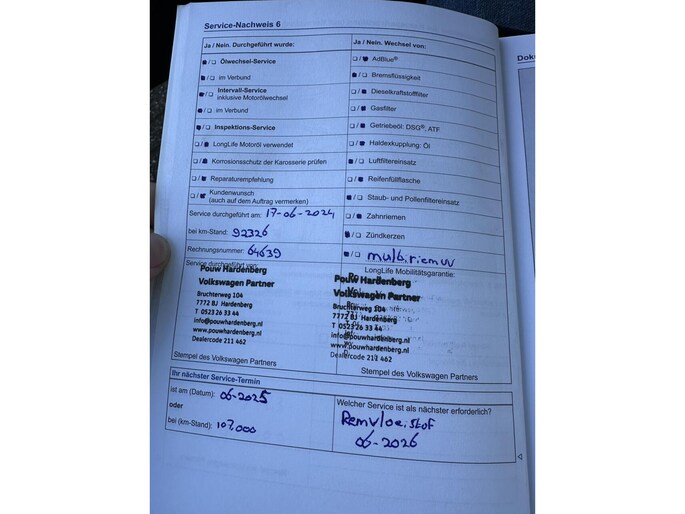 Service-Nachweis 6
Ja / Nein. Durchgeführt wurde:
Ölwechsel-Service
im Verbund
Intervall-Service
inklusive Motorölwechsel
im Verbund
Inspektions-Service
LongLife Motoröl verwendet
Korrosionsschutz der Karosserie prüfen
Reparaturempfehlung
Kundenwunsch
(auch auf dem Auftrag vermerken)
Service durchgeführt am: 17-06-2024
bei km-Stand: 92326
Rechnungsnummer: 64639
Service durchgeführt von:
Pouw Hardenberg
Volkswagen Partner
Bruchterweg 104
7772 BJ Hardenberg
T 0523 26 33 44
info@pouwhardenberg.nl
www.pouwhardenberg.nl
Dealercode 211 462
Stempel des Volkswagen Partners
Ja / Nein. Wechsel von:
AdBlue®
Bremsflüssigkeit
Dieselkraftstofffilter
Gasfilter
Getriebeöl: DSG®, ATF
Haldexkupplung: Öl
Luftfiltereinsatz
Reifenfüllflasche
Staub- und Pollenfiltereinsatz
Zahnriemen
Zündkerzen
multi.riem
LongLife Mobilitätsgarantie:
Pouw Hardenberg
Volkswagen Partner
Bruchterweg 104
7772 BJ Hardenberg
T 0523 26 33 44
info@pouwhardenberg.nl
www.pouwhardenberg.nl
Dealercode 211 462
Stempel des Volkswagen Partners
Ihr nächster Service-Termin
ist am (Datum): 06-2025
oder
bei (km-Stand): 107.000
Welcher Service ist als nächster erforderlich?
Remvloeistof
06-2026
Doku